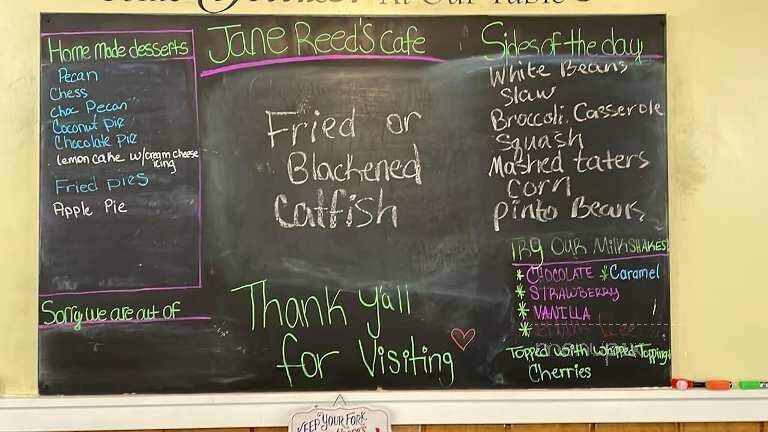 At Our Table
Home made desserts
Pecan
Chess
choc Pecan
Coconut Pie
Chocolate Pie
lemon cake w/cream cheese
icing
Fried pies
Apple Pie
Sorry we are out of
Jane Reed's Cafe
Fried or
Blackened
Catfish
Thank Y'all
for Visiting
Sides of the day
White Beans
Slaw
Broccoli Casserole
Squash
Mashed taters
Corn
Pinto Beans
Try Our Milkshakes!
* Chocolate * Caramel
* Strawberry
* Vanilla
*
Topped with Whipped Topping
Cherries
KEEP YOUR FORK